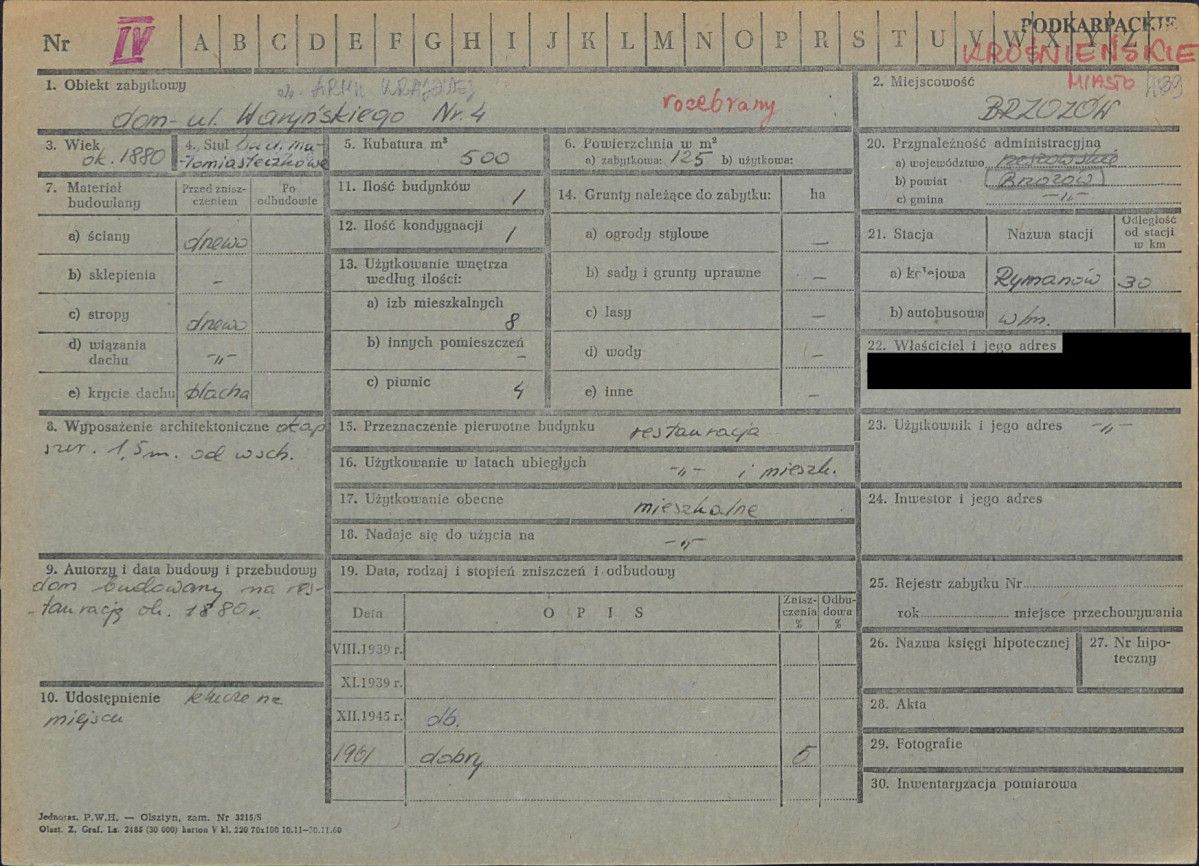 PODKARPACKIE
Nr IV A B C D E F G H I J K L M N O P R S T U V W X Y Z
KROŚNIEŃSKIE
MIASTO
1. Obiekt zabytkowy
ob. ARMII KRAJOWEJ
dom - ul. Waryńskiego Nr. 4
rozebrany
2. Miejscowość
BRZOZÓW
3. Wiek
ok. 1880
4. Styl Bud. ma-
-łomiasteczkowe
5. Kubatura m³
500
6. Powierzchnia w m²
a) zabytkowa: 125 b) użytkowa:
20. Przynależność administracyjną
a) województwo rzeszowskie
b) powiat Brzozów
c) gmina -„-
7. Materiał budowlany
Przed znisz-
czeniem
Po
odbudowie
a) ściany drewo
b) sklepienia -
c) stropy drewo
d) wiązania
dachu -„-
e) krycie dachu blacha
11. Ilość budynków 1
12. Ilość kondygnacji 1
13. Użytkowanie wnętrza
według ilości:
a) izb mieszkalnych
8
b) innych pomieszczeń
-
c) piwnic 4
14. Grunty należące do zabytku: ha
a) ogrody stylowe -
b) sady i grunty uprawne -
c) lasy -
d) wody -
e) inne -
21. Stacja
Nazwa stacji
Odległość
od stacji
w km
a) kolejowa Rymanów 30
b) autobusowa w/m.
22. Właściciel i jego adres
8. Wyposażenie architektoniczne okap
szer. 1,5 m. od wsch.
15. Przeznaczenie pierwotne budynku restauracja
16. Użytkowanie w latach ubiegłych -„- i mieszk.
17. Użytkowanie obecne mieszkalne
18. Nadaje się do użycia na -„-
23. Użytkownik i jego adres -„-
24. Inwestor i jego adres
9. Autorzy i data budowy i przebudowy
dom budowany na res-
-taurację ok. 1880 r.
19. Data, rodzaj i stopień zniszczeń i odbudowy
Data
O P I S
Znisz-
czenia
%
Odbu-
dowa
%
VIII.1939 r.
XI.1939 r.
XII.1945 r. db.
1961 dobry 5
10. Udostępnienie klucze na
miejscu
25. Rejestr zabytku Nr
rok miejsce przechowywania
26. Nazwa księgi hipotecznej
27. Nr hipo-
teczny
28. Akta
29. Fotografie
30. Inwentaryzacja pomiarowa
Jednotaz. P.W.H. — Olsztyn, zam. Nr 3215/S
Olszt. Z. Graf. Lz. 2485 (30 000) karton V kl. 220 70x100 10.11—30.11.60